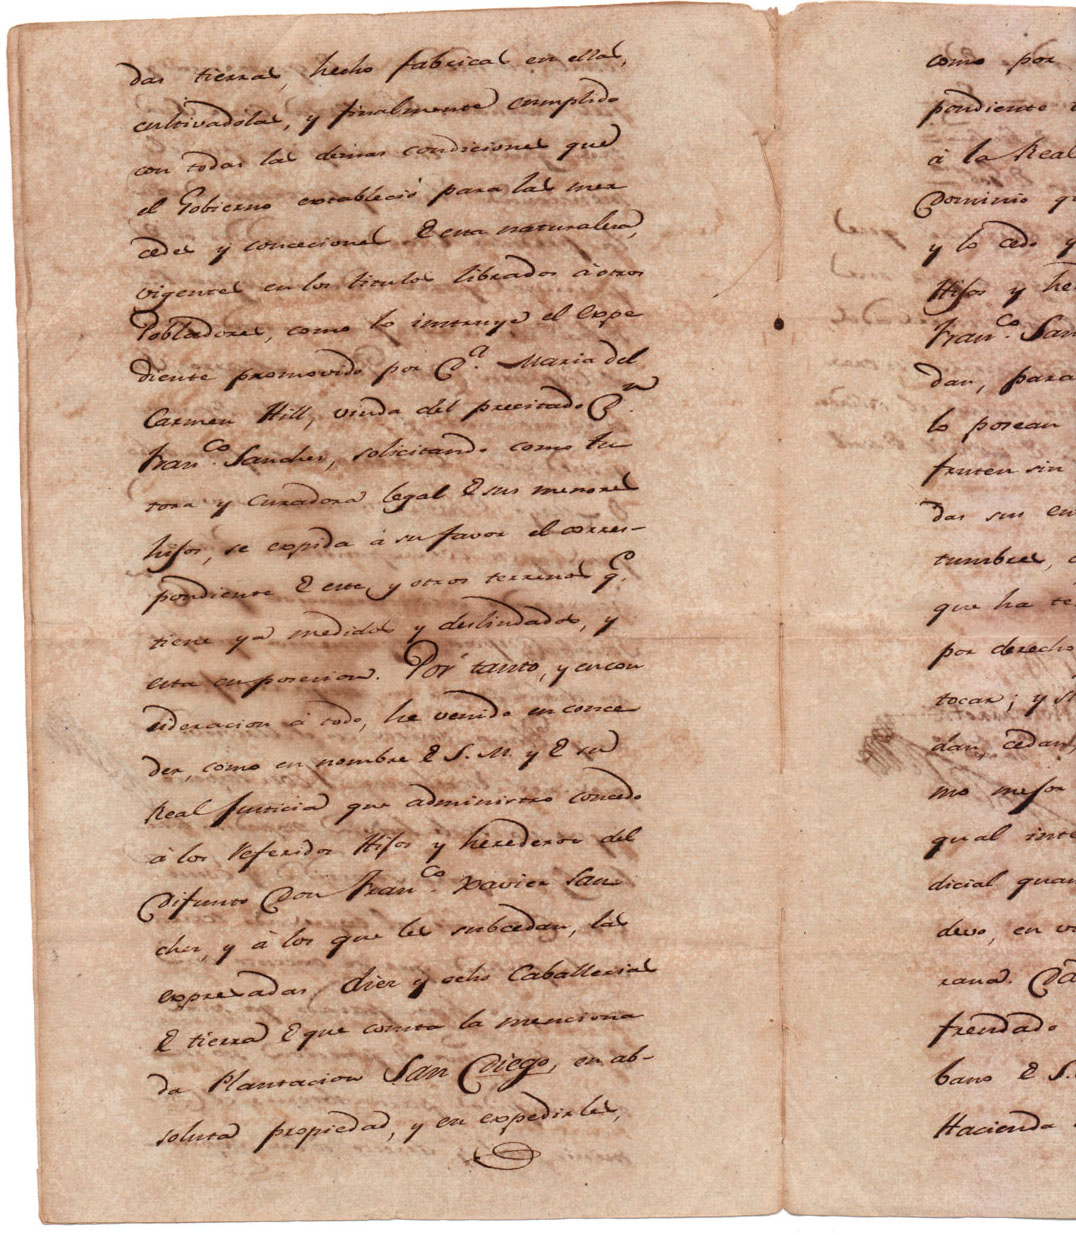 das tierras, hecho fabricas en ellas,
cultivadolas, y finalmente cumplido
con todas las demas condiciones que
el Gobierno estableció para las mer
cedes y conceciones de esta naturaleza,
vigentes en los titulos librados à otros
Pobladores, como lo instruye el Expe
diente promovido por Dª. Maria del
Carmen Hill, viuda del precitado Dn.
Franco. Sanchez, solicitando como tu
tora y curadora legal de sus menores
hijos, se expida a su favor el corres-
pondiente de este, y otros terrenos q.e
tiene ya medidos y deslindados, y
esta en posecion. Por tanto, y en con
sideracion à todo, he venido en conce
der, como en nombre de S. M. y de su
Real Justicia que administro concedo
à los referidos Hijos y herederos del
Difunto Don Franco. Xavier San
chez, y à los que les subcedan, las
expresadas diez y ocho Caballerias
de tierra de que consta la menciona
da Plantacion San Diego, en ab-
soluta propiedad, y en expedirles,
como por
pondiente
à la Real
Dominio qu
y lo cedo y
Hijos y he
Franco. San
dan, para
lo posean
fruten sin
das sus en
tumbres,
que ha te
por derecho
tocar; y si
dan cedan,
mo mejor
qual inte
dicial quan
devo, en vi
rana. Da
frendado
bano de S.
Hacienda